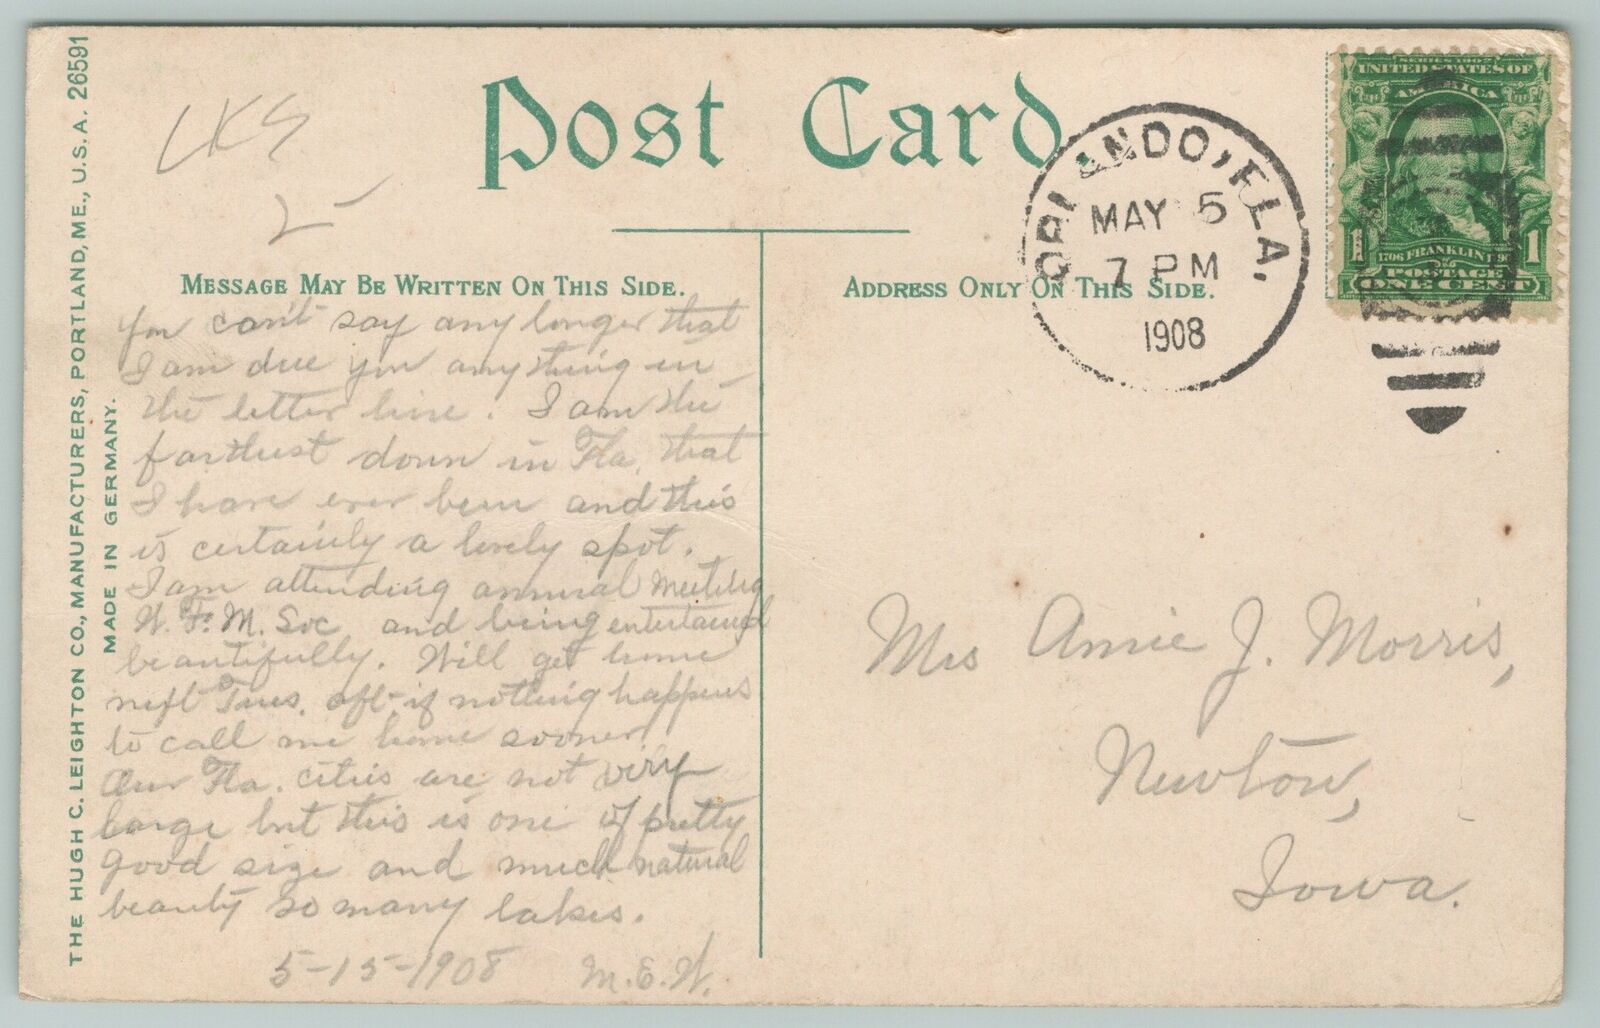 THE HUGH C. LEIGHTON CO., MANUFACTURERS, PORTLAND, ME., U.S.A. 26591
MADE IN GERMANY.
Post Card
MESSAGE MAY BE WRITTEN ON THIS SIDE.
You can't say any longer that
I am due you anything in
the letter line. I am the
farthest down in Fla. that
I have ever been and this
is certainly a lovely spot.
I am attending annual Meeting
W. F. M. Soc and being entertained
beautifully. Will get home
next Tues. aft. if nothing happens
to call me home sooner.
Our Fla. cities are not very
large but this is one of pretty
good size and much natural
beauty so many lakes.
5-15-1908 M.E.W.
ADDRESS ONLY ON THIS SIDE.
ORLANDO, FLA.
MAY 5
7 PM
1908
SERIES 1902
UNITED STATES OF
AMERICA
1706 FRANKLIN 1790
POSTAGE
1 ONE CENT 1
Mrs Annie J. Morris,
Newton,
Iowa.